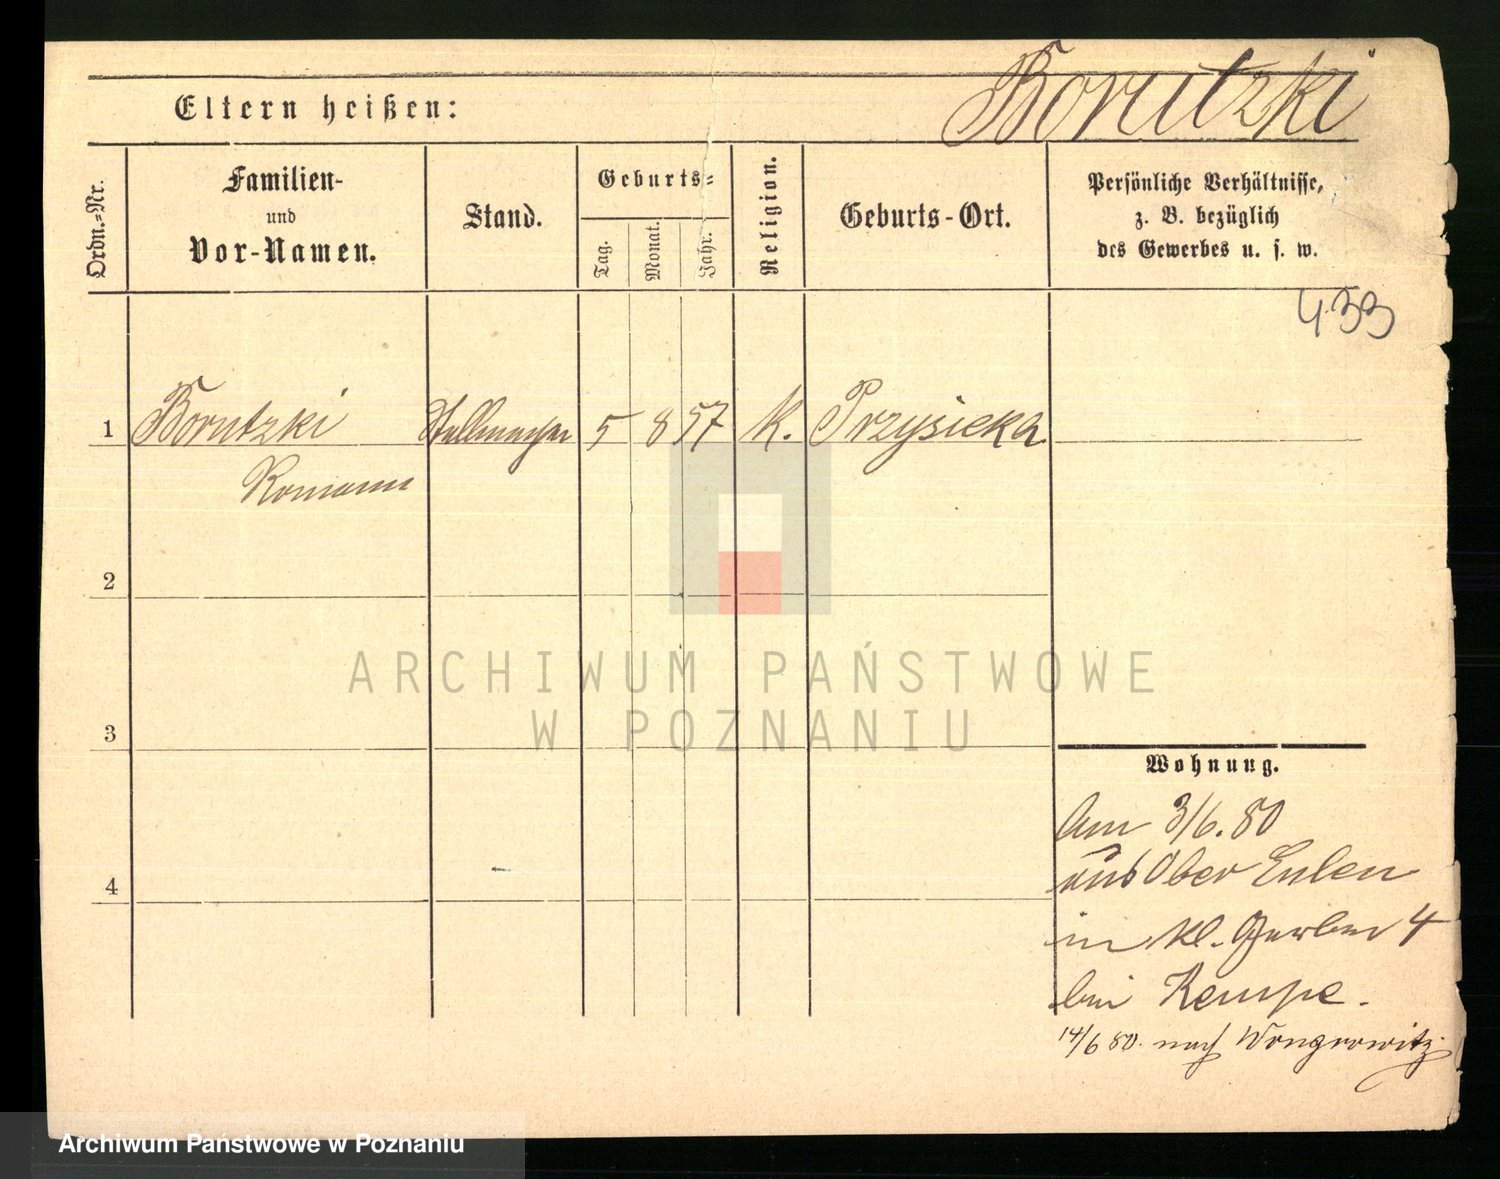 Borutzki
Eltern heißen:
Ordn.-Nr.
Familien-
und
Vor-Namen.
Stand.
Geburts-
Tag.
Monat.
Jahr.
Religion.
Geburts-Ort.
Persönliche Verhältnisse,
z. B. bezüglich
des Gewerbes u. s. w.
433
1 Borutzki Stellmacher 5 8 57 K. Przysieka
Romann
2
3
4
Wohnung.
Am 3/6. 80
aus Ober Eulen
in kl. Gerber 4
bei Kempe.
14/6 80. nach Wongrowitz.
ARCHIWUM PAŃSTWOWE
W POZNANIU
Archiwum Państwowe w Poznaniu